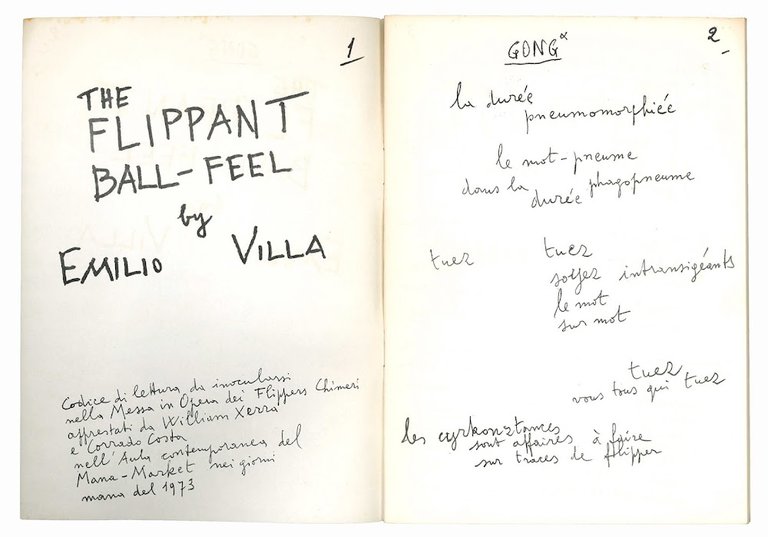 1
THE
FLIPPANT
BALL-FEEL
by
EMILIO VILLA
Codice di lettura da inocularsi
nella Messa in Opera dei Flippers Chimeri
apprestati da William Xerra
e Corrado Costa
nell'Aula contemporanea del
Mana-Market nei giorni
mana del 1973
2
GONG α
la durée
pneumomorphiée
le mot-pneume
dans la durée phagopneume
tuez tuez
soyez intransigéants
le mot
sur mot
tuez
vous tous qui tuez
les cyrkonztances
sont affaires à faire
sur traces de flipper